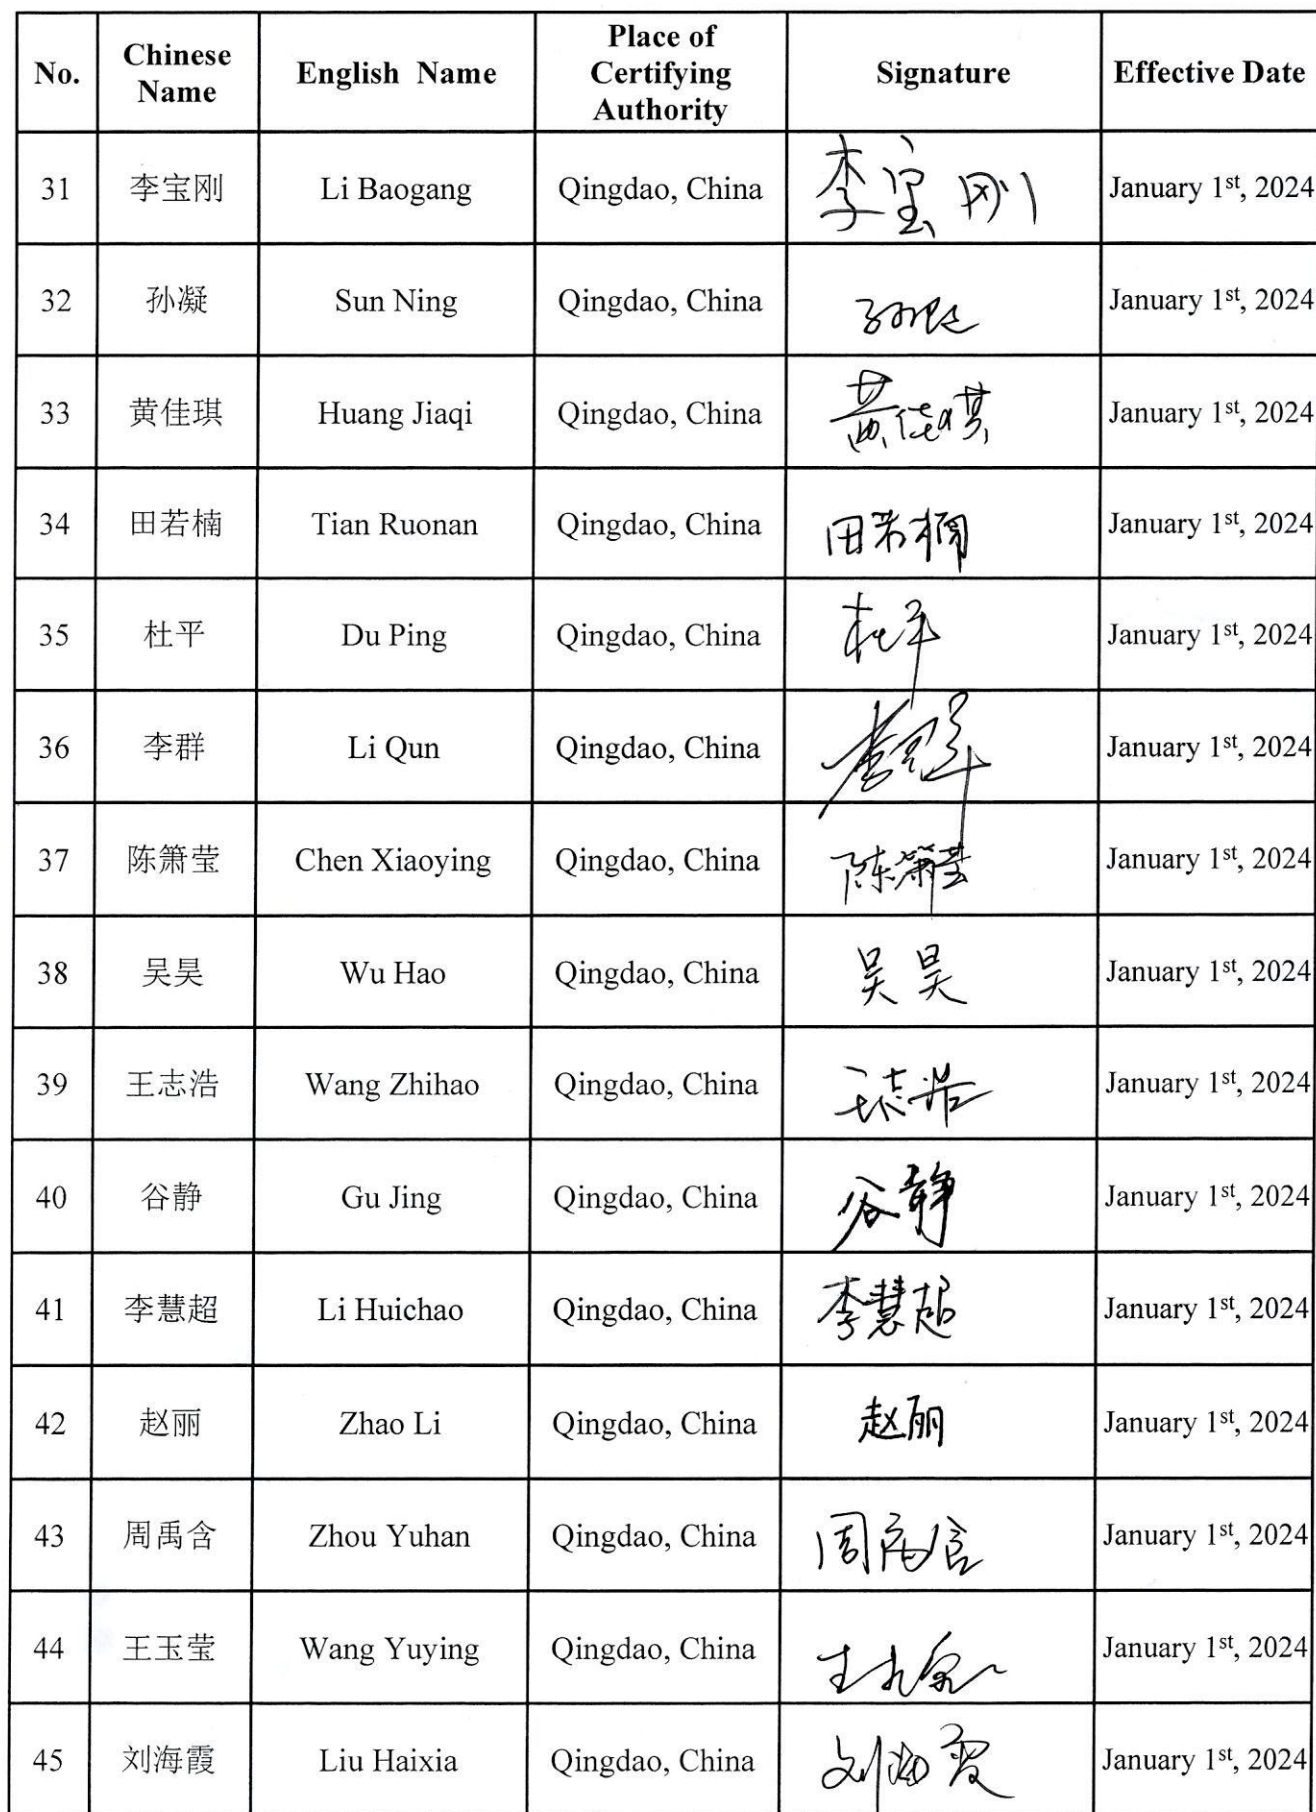 No. Chinese Name English Name Place of Certifying Authority Signature Effective Date
31 李宝刚 Li Baogang Qingdao, China 李宝刚 January 1st, 2024
32 孙凝 Sun Ning Qingdao, China January 1st, 2024
33 黄佳琪 Huang Jiaqi Qingdao, China 黄佳琪 January 1st, 2024
34 田若楠 Tian Ruonan Qingdao, China 田若楠 January 1st, 2024
35 杜平 Du Ping Qingdao, China 杜平 January 1st, 2024
36 李群 Li Qun Qingdao, China 李群 January 1st, 2024
37 陈箫莹 Chen Xiaoying Qingdao, China 陈箫莹 January 1st, 2024
38 吴昊 Wu Hao Qingdao, China 吴昊 January 1st, 2024
39 王志浩 Wang Zhihao Qingdao, China 王志浩 January 1st, 2024
40 谷静 Gu Jing Qingdao, China 谷静 January 1st, 2024
41 李慧超 Li Huichao Qingdao, China 李慧超 January 1st, 2024
42 赵丽 Zhao Li Qingdao, China 赵丽 January 1st, 2024
43 周禹含 Zhou Yuhan Qingdao, China 周禹含 January 1st, 2024
44 王玉莹 Wang Yuying Qingdao, China January 1st, 2024
45 刘海霞 Liu Haixia Qingdao, China 刘海霞 January 1st, 2024